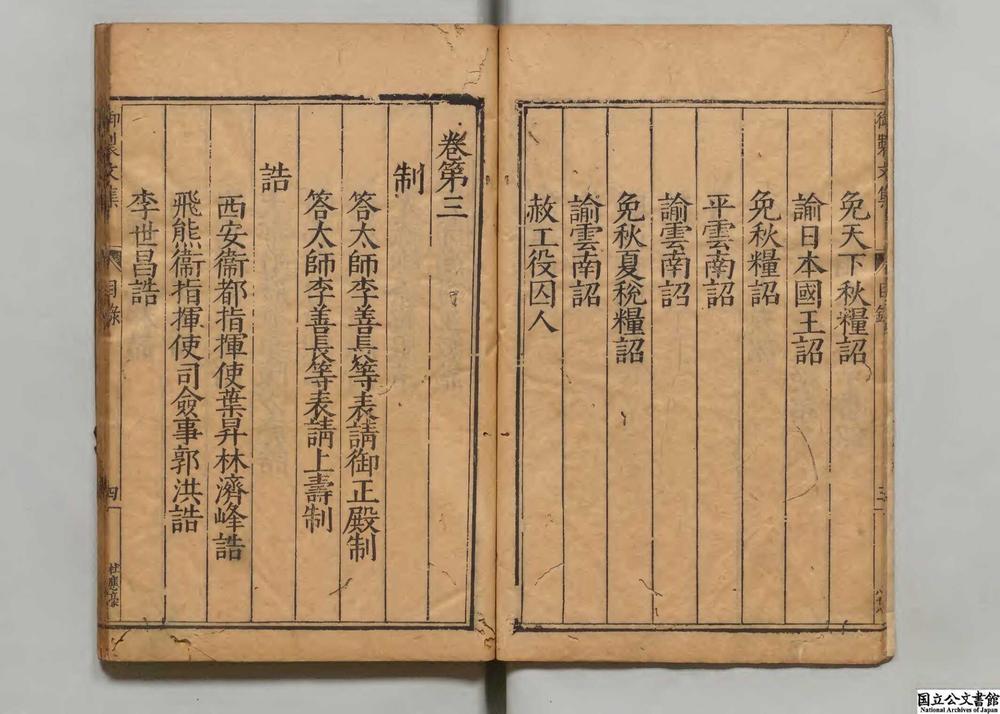 免天下秋糧詔
諭日本國王詔
免秋糧詔
平雲南詔
諭雲南詔
免秋夏稅糧詔
諭雲南詔
赦工役囚人
卷第三
制
答太師李善長等表請御正殿制
答太師李善長等表請上壽制
誥
西安衞都指揮使葉昇林濟峰誥
飛熊衞指揮使司僉事郭洪誥
李世昌誥
御製文集
目錄
四
国立公文書館
National Archives of Japan